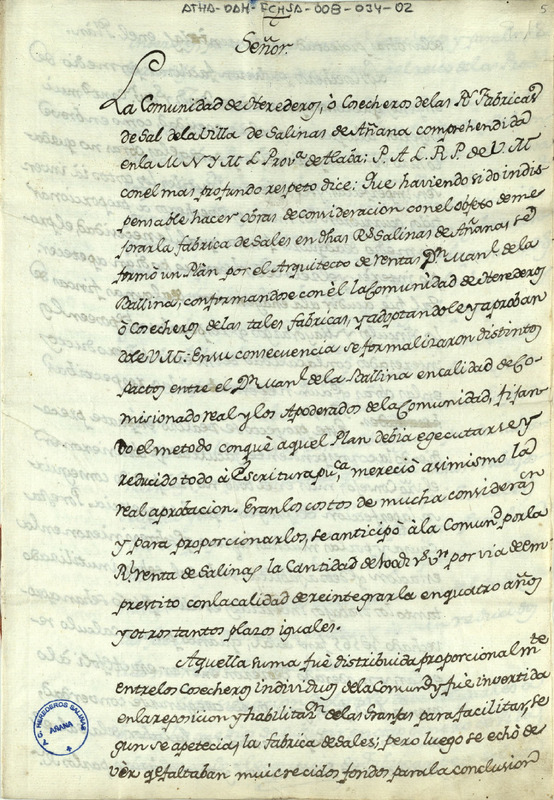 ATHA-DAH-FCHSA-008-034-02
5
Señor.
La Comunidad de Herederos, ò Cosecheros de las Rs. Fabricas
de Sal de la Villa de Salinas de Añana comprehendida
en la M. N. Y M. L. Prova. de Alaba; P. A. L. R. P. de V. M.
con el mas profundo respeto dice: Que haviendo sido indis
pensable hacer obras de consideracion con el objeto de me
jorar la fabrica de Sales en dhas Rs. Salinas de Añana, se
formó un Plàn por el Arquitecto de rentas Dn. Manl. de la
Ballina, conformandose con èl la Comunidad de Herederos
ò Cosecheros de las tales fabricas, y adoptandole y aproban
dole V. M.: En su consecuencia se formalizaron distintos
Pactos entre el Dn. Manl. de la Ballina en calidad de Co-
misionado real y los Apoderados de la Comunidad, fijan
do el metodo con què aquel Plan debia egecutarse, y
reducido todo à Escritura puca. mereciò asimismo la
real aprobacion. Eran los costos de mucha consideràn
y para proporcionarlos, se anticipò à la Comund. por la
Rl. renta de Salinas la Cantidad de rs. vn. por via de em
prestito con la calidad de reintegrarla en quatro años
y otros tantos plazos iguales.
Aquella suma fuè distribuida proporcionalmte.
entre los Cosecheros individuos de la Comund. y fuè invertida
en la reposicion y habilitazn. de las Granjas para facilitar, se
gun se apetecia, la fabrica de Sales; pero luego se echò de
vèr qe. faltaban mui crecidos fondos para la conclusion
A. C. HEREDEROS SALINAS
AÑANA